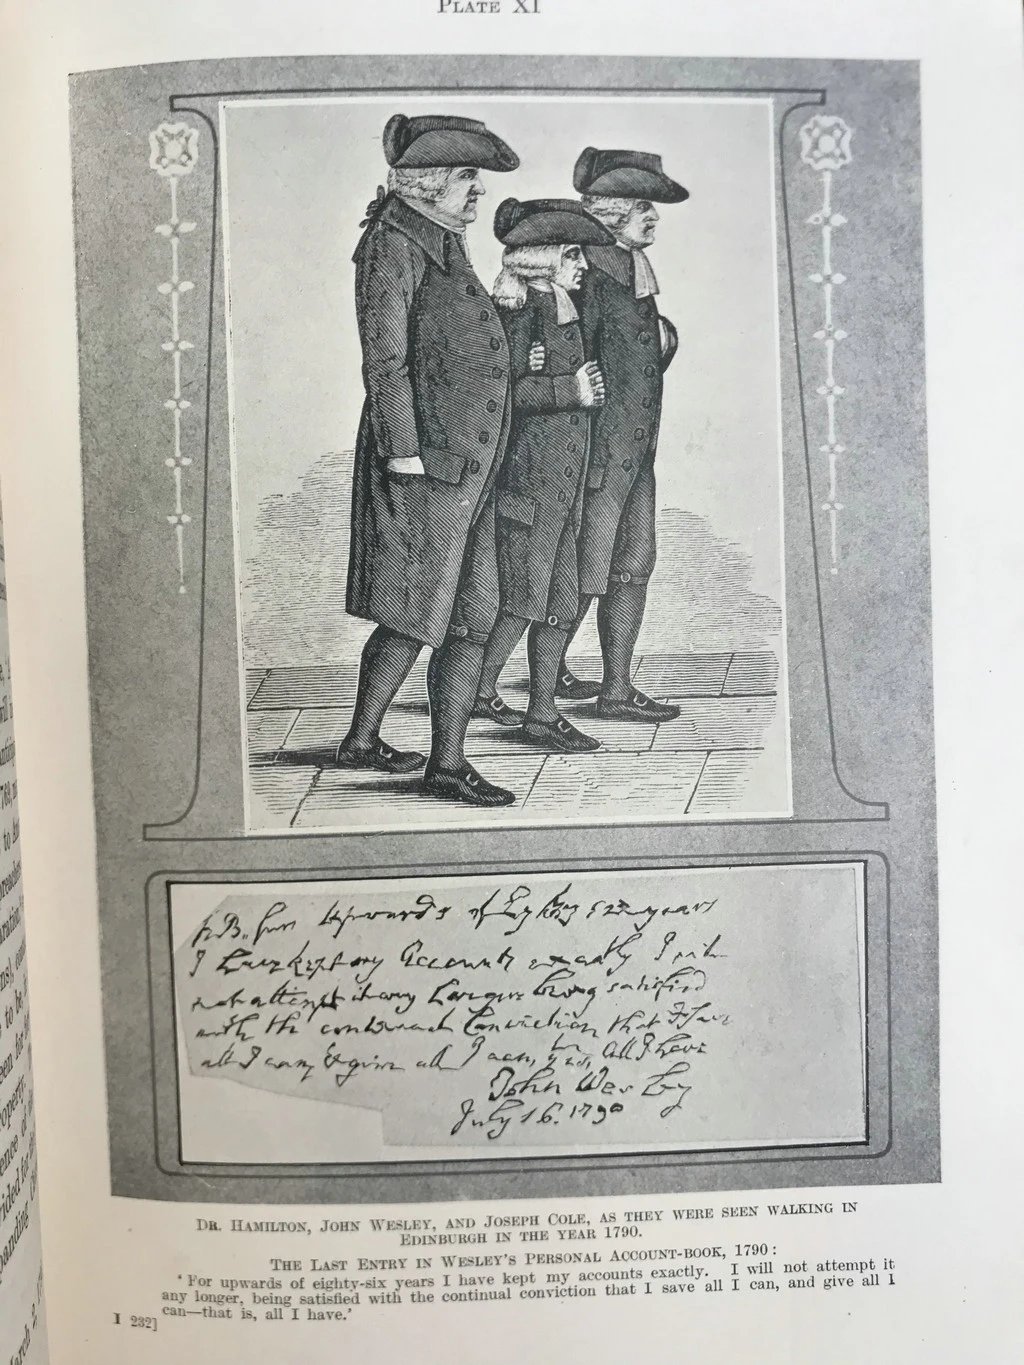 PLATE XI
upwards of Eighty six years
I have kept my Accounts exactly I will
not attempt it any longer being satisfied
with the continual Conviction that I save
all I can, & give all I can, All I have
John Wesley
July 16. 1790
DR. HAMILTON, JOHN WESLEY, AND JOSEPH COLE, AS THEY WERE SEEN WALKING IN
EDINBURGH IN THE YEAR 1790.
THE LAST ENTRY IN WESLEY'S PERSONAL ACCOUNT-BOOK, 1790:
'For upwards of eighty-six years I have kept my accounts exactly. I will not attempt it
any longer, being satisfied with the continual conviction that I save all I can, and give all I
can—that is, all I have.'
I 232]